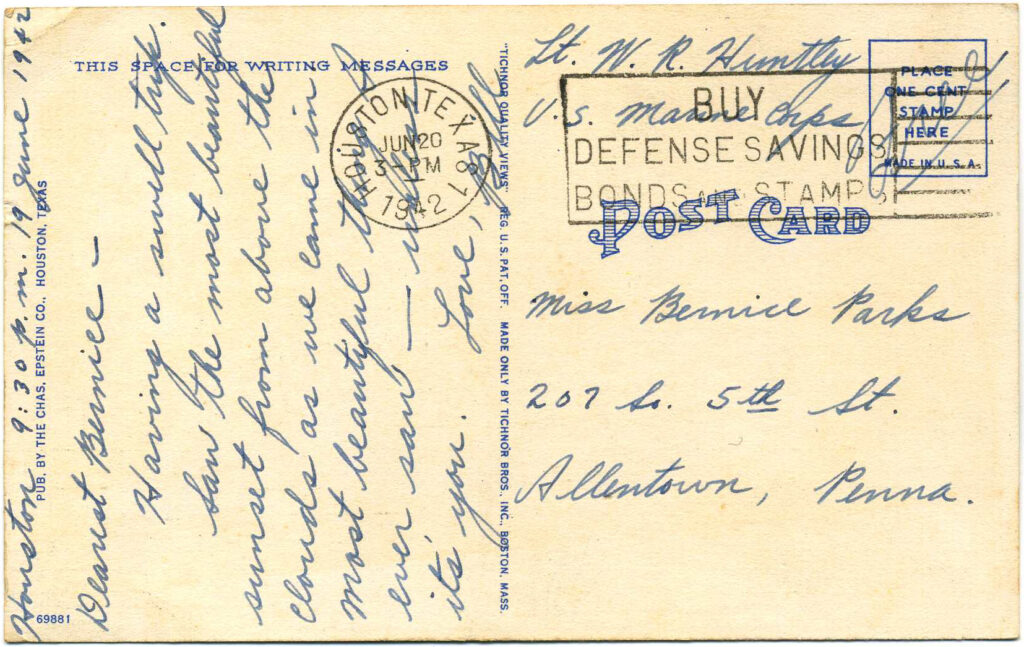 Houston 9:30 p.m. 19 June 1942
Dearest Bernice —
Having a swell trip.
Saw the most beautiful
sunset from above the
clouds as we came in
most beautiful thing I
ever saw —
it's you. Love,
THIS SPACE FOR WRITING MESSAGES
PUB. BY THE CHAS. EPSTEIN CO., HOUSTON, TEXAS
69881
HOUSTON, TEXAS 1
JUN 20
3-PM
1942
"TICHNOR QUALITY VIEWS" REG. U.S. PAT. OFF. MADE ONLY BY TICHNOR BROS., INC., BOSTON, MASS.
Lt. W. R. Huntley
U.S. Marine Corps
BUY
DEFENSE SAVINGS
BONDS AND STAMPS
PLACE
ONE CENT
STAMP
HERE
MADE IN U.S.A.
POST CARD
Miss Bernice Parks
207 So. 5th St.
Allentown, Penna.